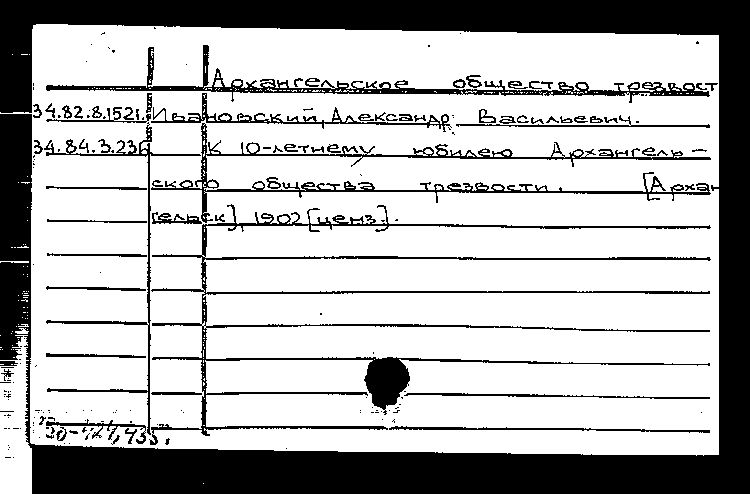 Архангельское общество трезвост
34.82.8.1521. Ивановский, Александр Васильевич.
34.84.3.236 К 10-летнему юбилею Архангель-
ского общества трезвости. [Архан
гельск], 1902 [ценз].